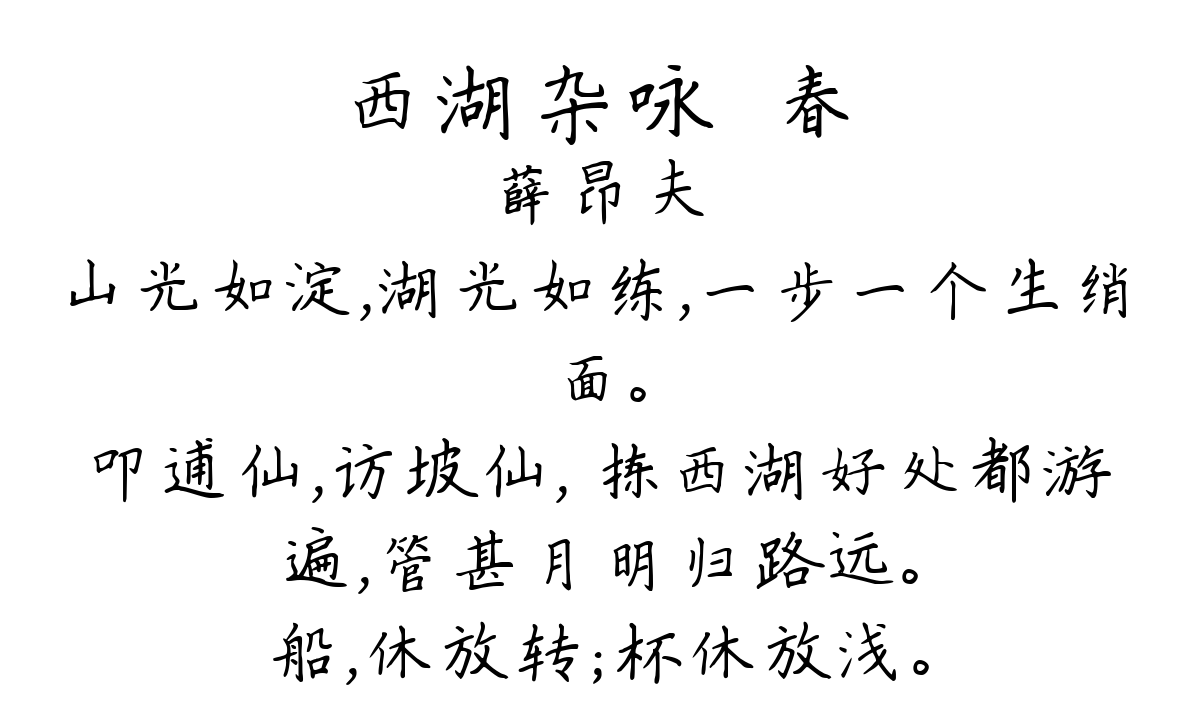 西湖杂咏 春
薛昂夫
山光如淀,湖光如练,一步一个生绡
面。
叩逋仙,访坡仙, 拣西湖好处都游
遍,管甚月明归路远。
船,休放转;杯休放浅。